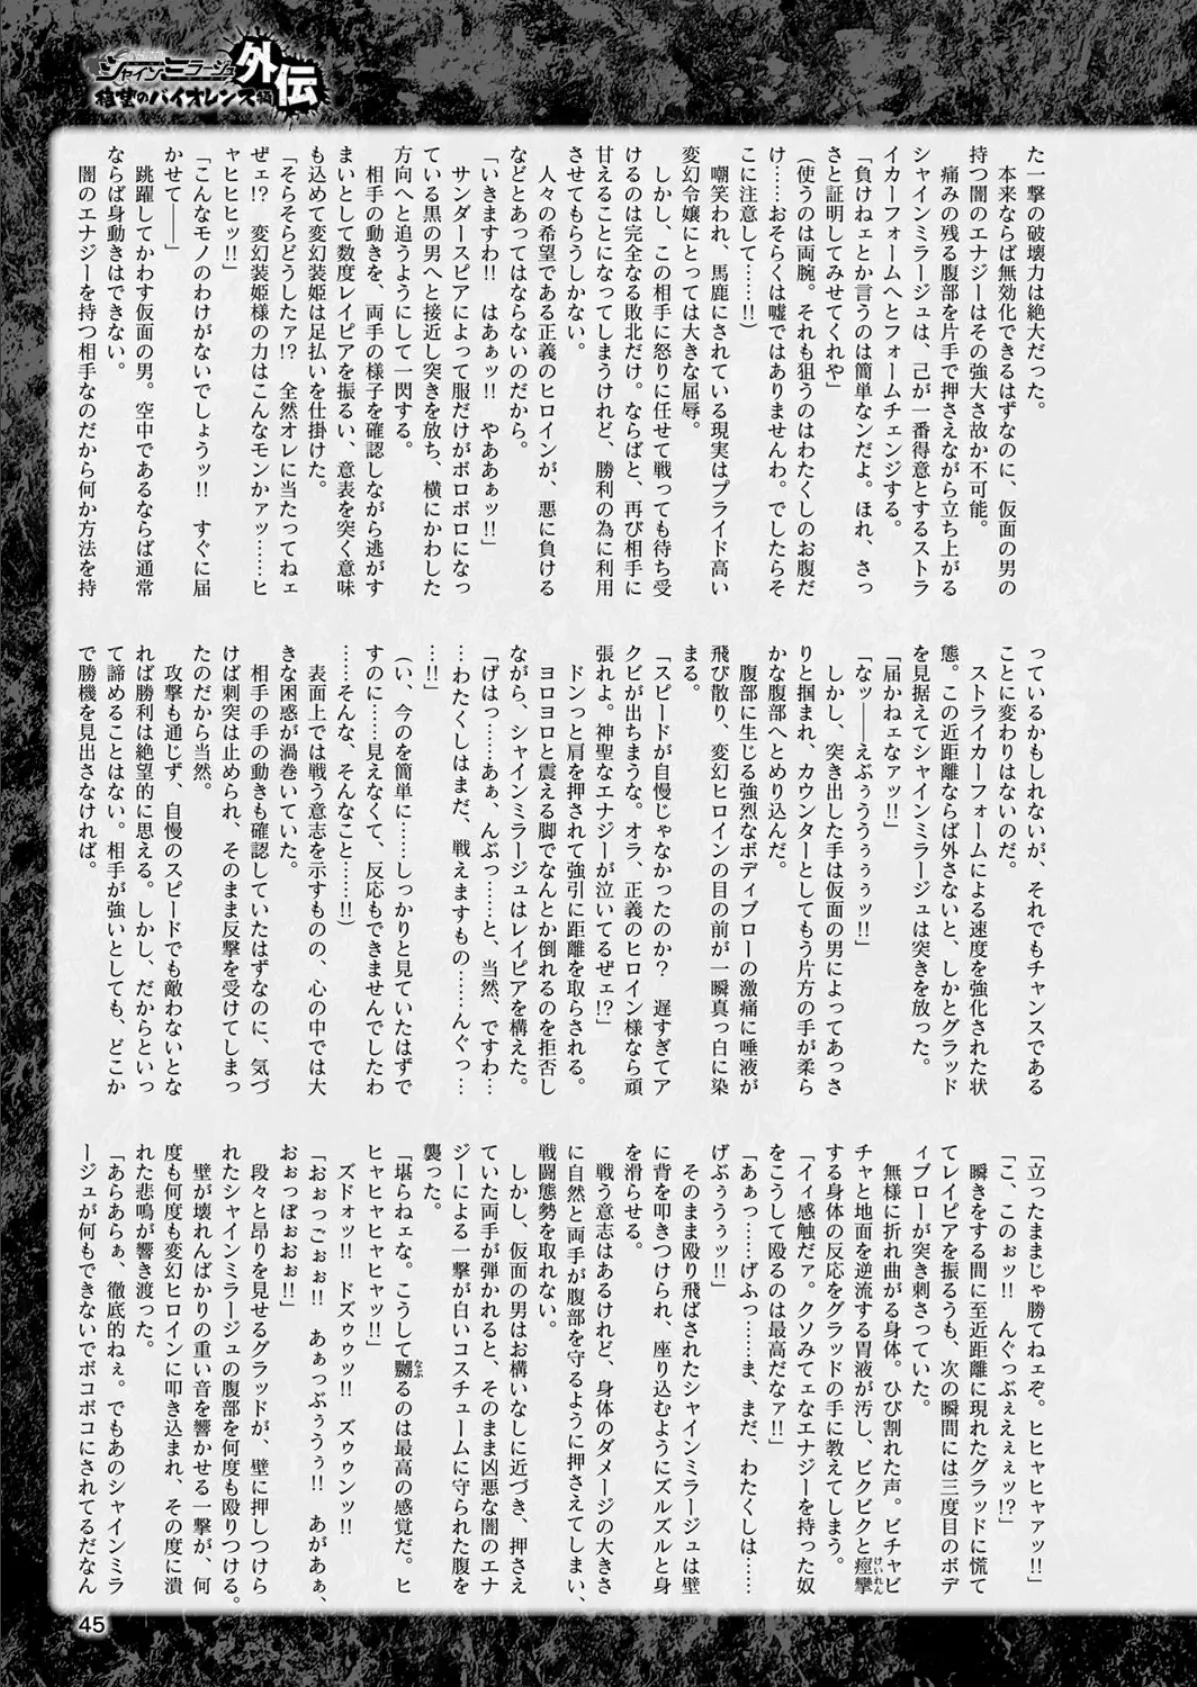 シャインミラージュ
外伝
絶望のバイオレンス編
た一撃の破壊力は絶大だった。
　本来ならば無効化できるはずなのに、仮面の男の
持つ闇のエナジーはその強大さ故か不可能。
　痛みの残る腹部を片手で押さえながら立ち上がる
シャインミラージュは、己が一番得意とするストラ
イカーフォームへとフォームチェンジする。
「負けねェとか言うのは簡単なンだよ。ほれ、さっ
さと証明してみせてくれや」
（使うのは両腕。それも狙うのはわたくしのお腹だ
け……おそらくは嘘ではありませんわ。でしたらそ
こに注意して……!!）
　嘲笑われ、馬鹿にされている現実はプライド高い
変幻令嬢にとっては大きな屈辱。
　しかし、この相手に怒りに任せて戦っても待ち受
けるのは完全なる敗北だけ。ならばと、再び相手に
甘えることになってしまうけれど、勝利の為に利用
させてもらうしかない。
　人々の希望である正義のヒロインが、悪に負ける
などとあってはならないのだから。
「いきますわ!!　はあぁッ!!　やああぁッ!!」
　サンダースピアによって服だけがボロボロになっ
ている黒の男へと接近し突きを放ち、横にかわした
方向へと追うようにして一閃する。
　相手の動きを、両手の様子を確認しながら逃がす
まいとして数度レイピアを振るい、意表を突く意味
も込めて変幻装姫は足払いを仕掛けた。
「そらそらどうしたァ!?　全然オレに当たってねェ
ぜェ!?　変幻装姫様の力はこんなモンかァッ……ヒ
ャヒヒヒッ!!」
「こんなモノのわけがないでしょうッ!!　すぐに届
かせて――」
　跳躍してかわす仮面の男。空中であるならば通常
ならば身動きはできない。
　闇のエナジーを持つ相手なのだから何か方法を持
っているかもしれないが、それでもチャンスである
ことに変わりはないのだ。
　ストライカーフォームによる速度を強化された状
態。この近距離ならば外さないと、しかとグラッド
を見据えてシャインミラージュは突きを放った。
「届かねェなァッ!!」
「なッ――えぶぅうううぅぅぅッ!!」
　しかし、突き出した手は仮面の男によってあっさ
りと掴まれ、カウンターとしてもう片方の手が柔ら
かな腹部へとめり込んだ。
　腹部に生じる強烈なボディブローの激痛に唾液が
飛び散り、変幻ヒロインの目の前が一瞬真っ白に染
まる。
「スピードが自慢じゃなかったのか？　遅すぎてア
クビが出ちまうな。オラ、正義のヒロイン様なら頑
張れよ。神聖なエナジーが泣いてるぜェ!?」
　ドンっと肩を押されて強引に距離を取らされる。
　ヨロヨロと震える脚でなんとか倒れるのを拒否し
ながら、シャインミラージュはレイピアを構えた。
「げはっ……あぁ、んぶっ……と、当然、ですわ…
…わたくしはまだ、戦えますもの……んぐっ…
…!!」
（い、今のを簡単に……しっかりと見ていたはずで
すのに……見えなくて、反応もできませんでしたわ
……そんな、そんなこと……!!）
　表面上では戦う意志を示すものの、心の中では大
きな困惑が渦巻いていた。
　相手の手の動きも確認していたはずなのに、気づ
けば刺突は止められ、そのまま反撃を受けてしまっ
たのだから当然。
　攻撃も通じず、自慢のスピードでも敵わないとな
れば勝利は絶望的に思える。しかし、だからといっ
て諦めることはない。相手が強いとしても、どこか
で勝機を見出さなければ。
「立ったままじゃ勝てねェぞ。ヒヒャヒャァッ!!」
「こ、このぉッ!!　んぐっぶぇえぇぇッ!?」
　瞬きをする間に至近距離に現れたグラッドに慌て
てレイピアを振るうも、次の瞬間には三度目のボデ
ィブローが突き刺さっていた。
　無様に折れ曲がる身体。ひび割れた声。ビチャビ
チャと地面を逆流する胃液が汚し、ビクビクと痙攣
する身体の反応をグラッドの手に教えてしまう。
「イィ感触だァ。クソみてェなエナジーを持った奴
をこうして殴るのは最高だなァ!!」
「あぁっ……げふっ……ま、まだ、わたくしは……
げぶぅうぅッ!!」
　そのまま殴り飛ばされたシャインミラージュは壁
に背を叩きつけられ、座り込むようにズルズルと身
を滑らせる。
　戦う意志はあるけれど、身体のダメージの大きさ
に自然と両手が腹部を守るように押さえてしまい、
戦闘態勢を取れない。
　しかし、仮面の男はお構いなしに近づき、押さえ
ていた両手が弾かれると、そのまま凶悪な闇のエナ
ジーによる一撃が白いコスチュームに守られた腹を
襲った。
「堪らねェな。こうして嬲るのは最高の感覚だ。ヒ
ヒャヒャヒャヒャッ!!」
　ズドォッ!!　ドズゥゥッ!!　ズゥゥンッ!!
「おぉっごぉぉ!!　あぁっぶぅうぅ!!　あがあぁ、
おぉっぽぉおぉ!!」
　段々と昂りを見せるグラッドが、壁に押しつけら
れたシャインミラージュの腹部を何度も殴りつける。
　壁が壊れんばかりの重い音を響かせる一撃が、何
度も何度も変幻ヒロインに叩き込まれ、その度に潰
れた悲鳴が響き渡った。
「あらあらぁ、徹底的ねぇ。でもあのシャインミラ
ージュが何もできないでボコボコにされてるだなん
45